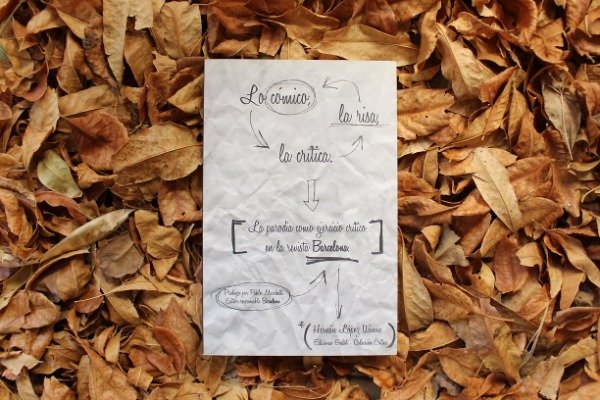 Lo cómico,
la risa,
la crítica.
La parodia como ejercicio crítico
en la revista Barcelona.
Prólogo por Pablo
Editor responsable Barcelona
* Hernán López
Ediciones